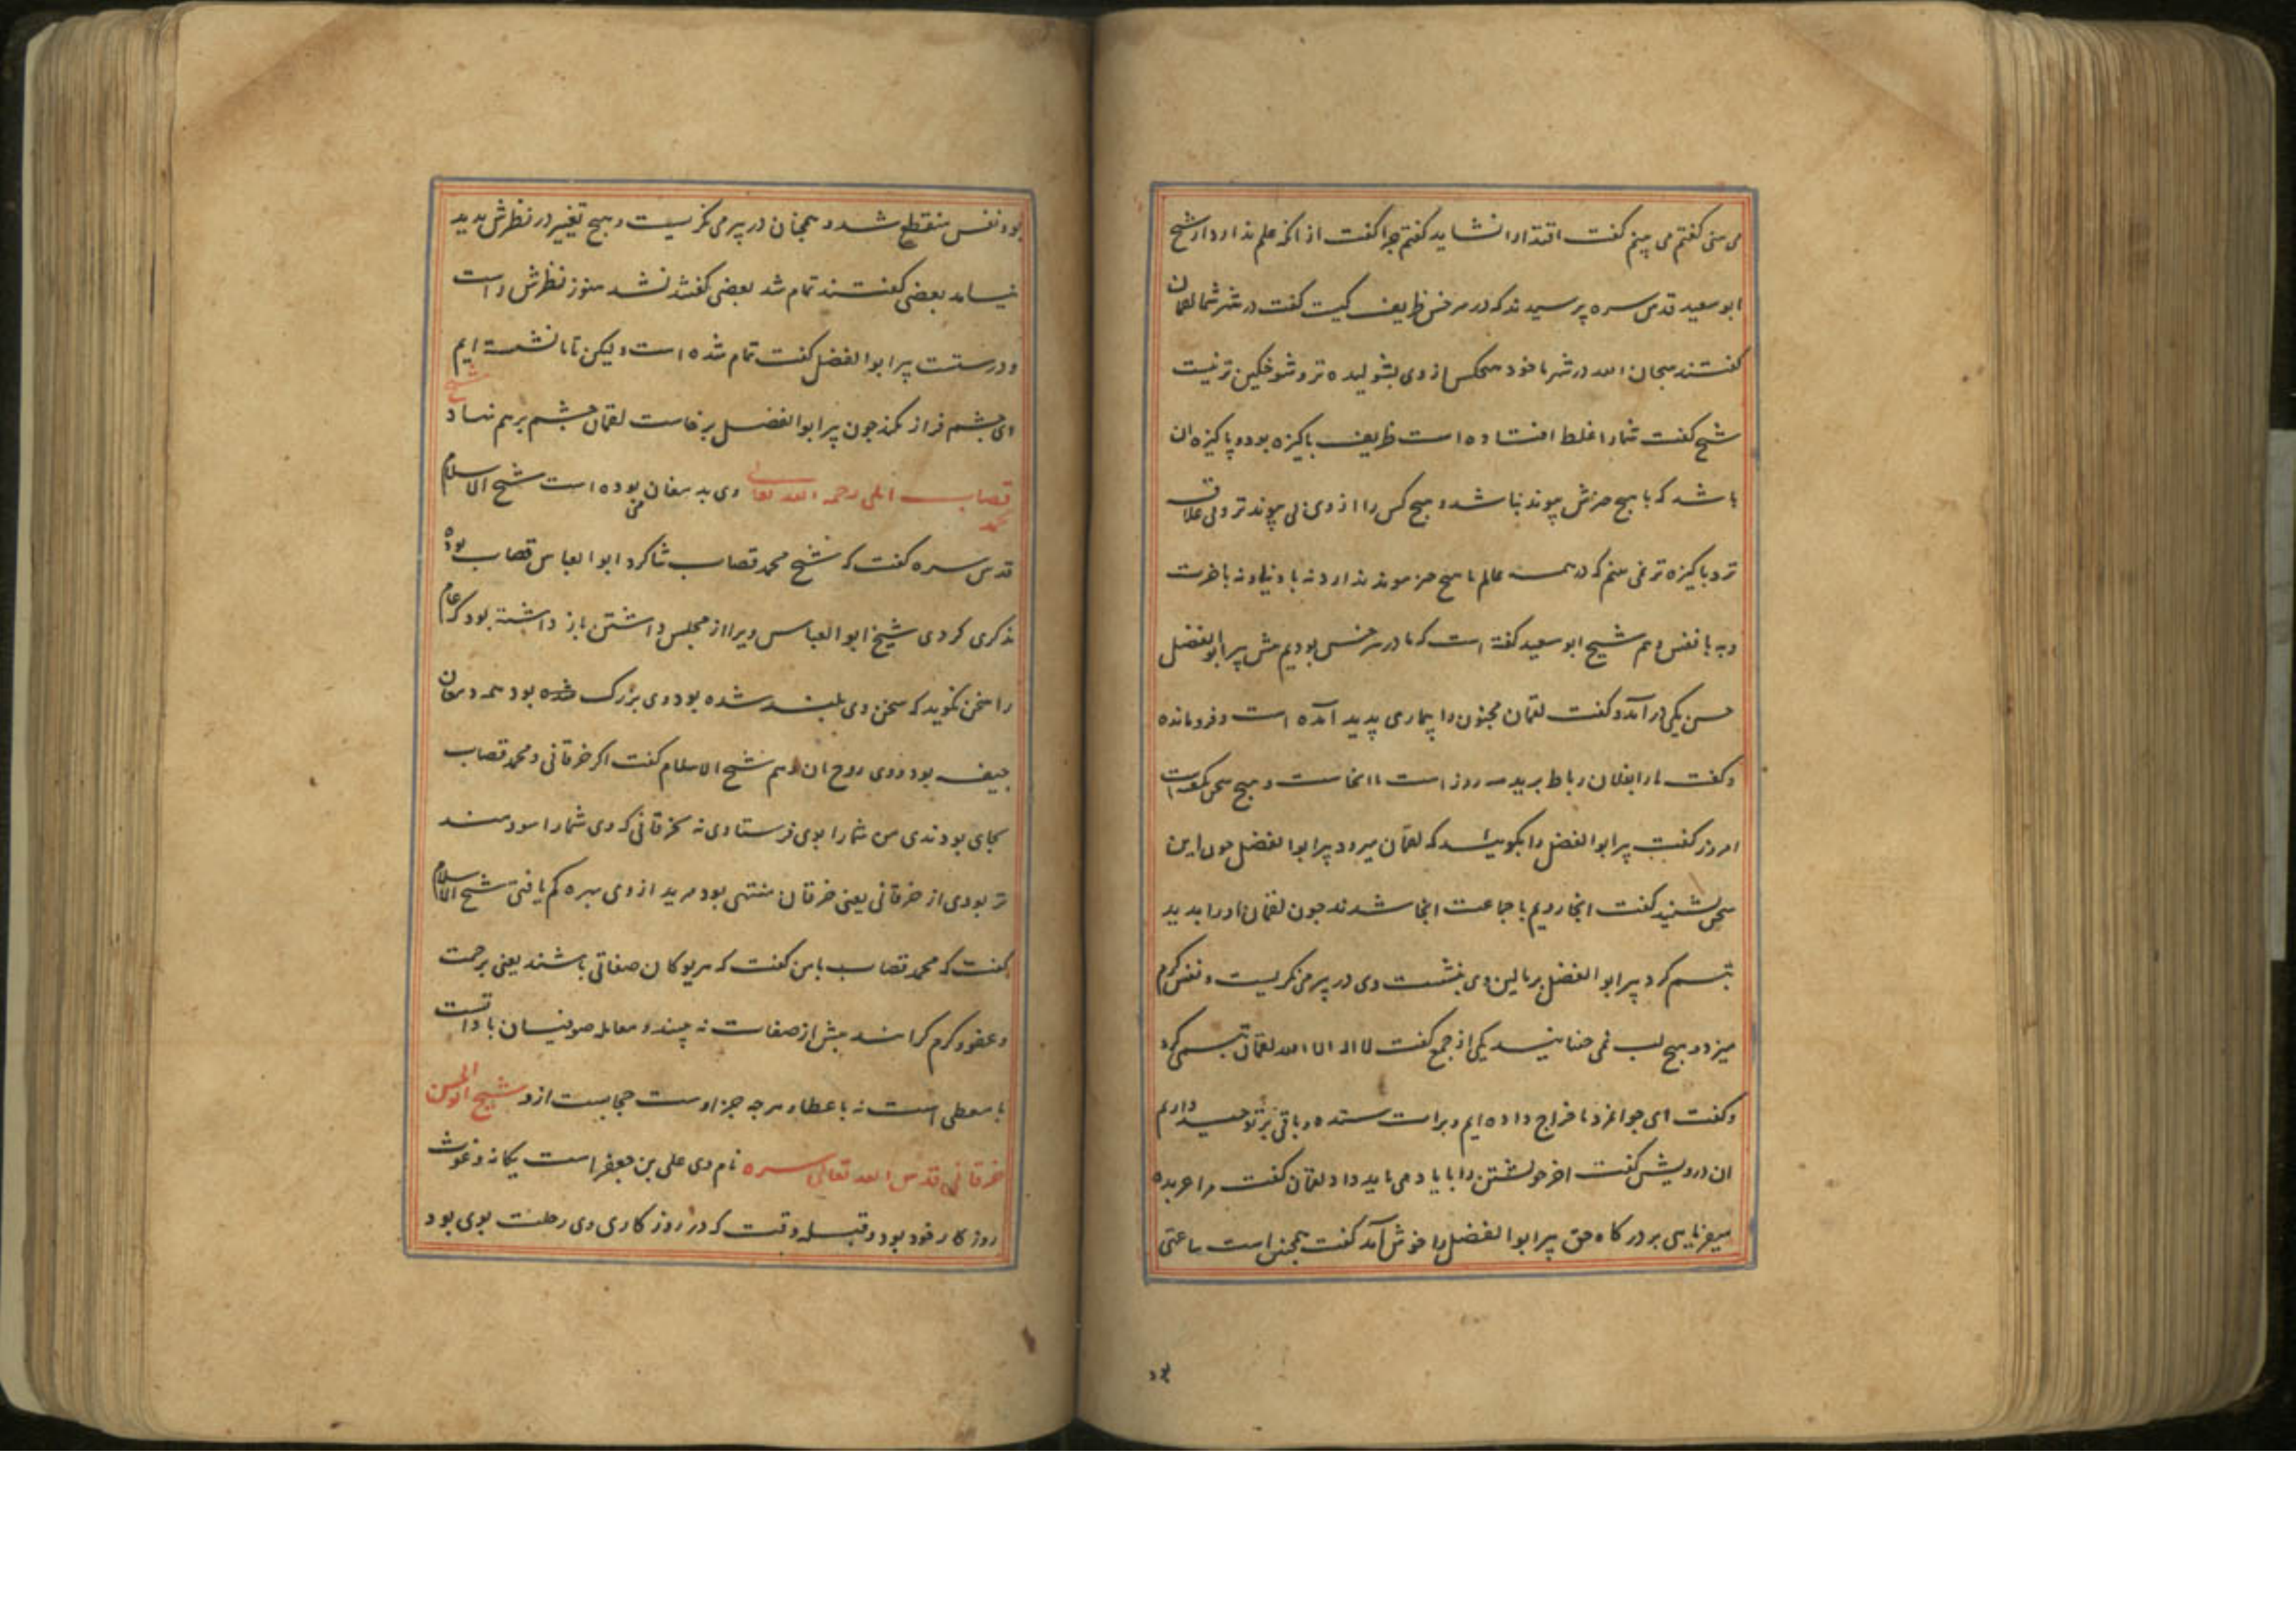 می بینی گفتم می بینم گفت اقتدا را نشاید گفتم چرا گفت از انکه علم ندارد از شیخ
ابو سعید قدس سره پرسیدند که در سرخس ظریف کیست گفت در شهر شما لقمان
گفتند سبحان الله در شهر ما خود هیچکس از وی بشولیده تر و شوخگین تر نیست
شیخ گفت شما را غلط افتاده است ظریف پاکیزه بود و پاکیزه ان
باشد که با هیچ چیزش پیوند نباشد و هیچ کس را از وی بی پیوند تر و بی علاقه
تر و پاکیزه تر نمی بینم که در همه عالم با هیچ چیز پیوند ندارد نه با دنیا و نه باخرت
و نه با نفس و هم شیخ ابو سعید گفته است که ما در سرخس بودیم پیش پیر ابو الفضل
حسن یکی در آمد و گفت لقمان مجنون را بیماری پدید آمده است و فرومانده
و گفت مارا بفلان رباط برید سه روز است تا انجاست و هیچ سخن نگفته است
امروز گفت پیر ابو الفضل را بگویید که لقمان میرود پیر ابو الفضل چون این
سخن بشنید گفت انجا رویم با جماعت انجا شدند چون لقمان او را بدید
تبسم کرد پیر ابو الفضل بر بالین وی بنشست وی در پیر می نگریست و نفس گرم
میزد و هیچ لب نمی جنبانید یکی از جمع گفت لا اله الا الله لقمان تبسمی کرد
و گفت ای جوانمرد ما خراج داده ایم و برات ستده و باقی بر توحید داریم
ان درویش گفت اخر خویشتن را با یاد می باید داد لقمان گفت مرا عربده
میفرمایی بر درگاه حق پیر ابو الفضل را خوش آمد گفت همچنین است ساعتی
بود نفس منقطع شد و همچنان در پیر می نگریست و هیچ تغییر در نظرش پدید
نیامد بعضی گفتند تمام شد بعضی گفتند نشد هنوز نظرش راست
و درستست پیر ابو الفضل گفت تمام شده است و لیکن تا ما نشسته ایم
او چشم فراز نکند چون پیر ابو الفضل برخاست لقمان چشم برهم نهاد شیخ محمد
قصاب املی رحمه الله تعالی وی بدامغان بوده است شیخ الاسلام
قدس سره گفت که شیخ محمد قصاب شاگرد ابو العباس قصاب بوده
مذکری کردی شیخ ابو العباس ویرا از مجلس داشتن باز داشته بود که عام
را سخن نگوید که سخن وی بلند شده بود وی بزرگ شده بود همه دامغان
جیفه بود و وی روح ان و هم شیخ الاسلام گفت اگر خرقانی و محمد قصاب
بجای بودندی من شما را بوی فرستادی نه بخرقانی که وی شما را سودمند
تر بودی از خرقانی یعنی خرقان منتهی بود مرید از وی بهره کم یافتی شیخ الاسلام
گفت که محمد قصاب با من گفت که مریدکان صفاتی باشند یعنی برحمت
و عفو و کرم گرانند بیش از صفات نه بینند و معامله صوفیان با ذاتست
با معطی است نه با عطا و هر چه جز اوست حجابست از و شیخ ابو الحسن
خرقانی قدس الله تعالی سره نام وی علی بن جعفر است یگانه و غوث
روزگار خود بود و قبله وقت که در روزکاری وی رحلت بوی بود